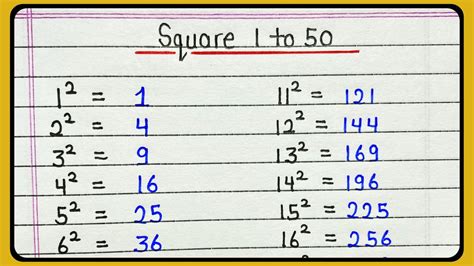 Square 1 to 50
1² = 1
2² = 4
3² = 9
4² = 16
5² = 25
6² = 36
11² = 121
12² = 144
13² = 169
14² = 196
15² = 225
16² = 256